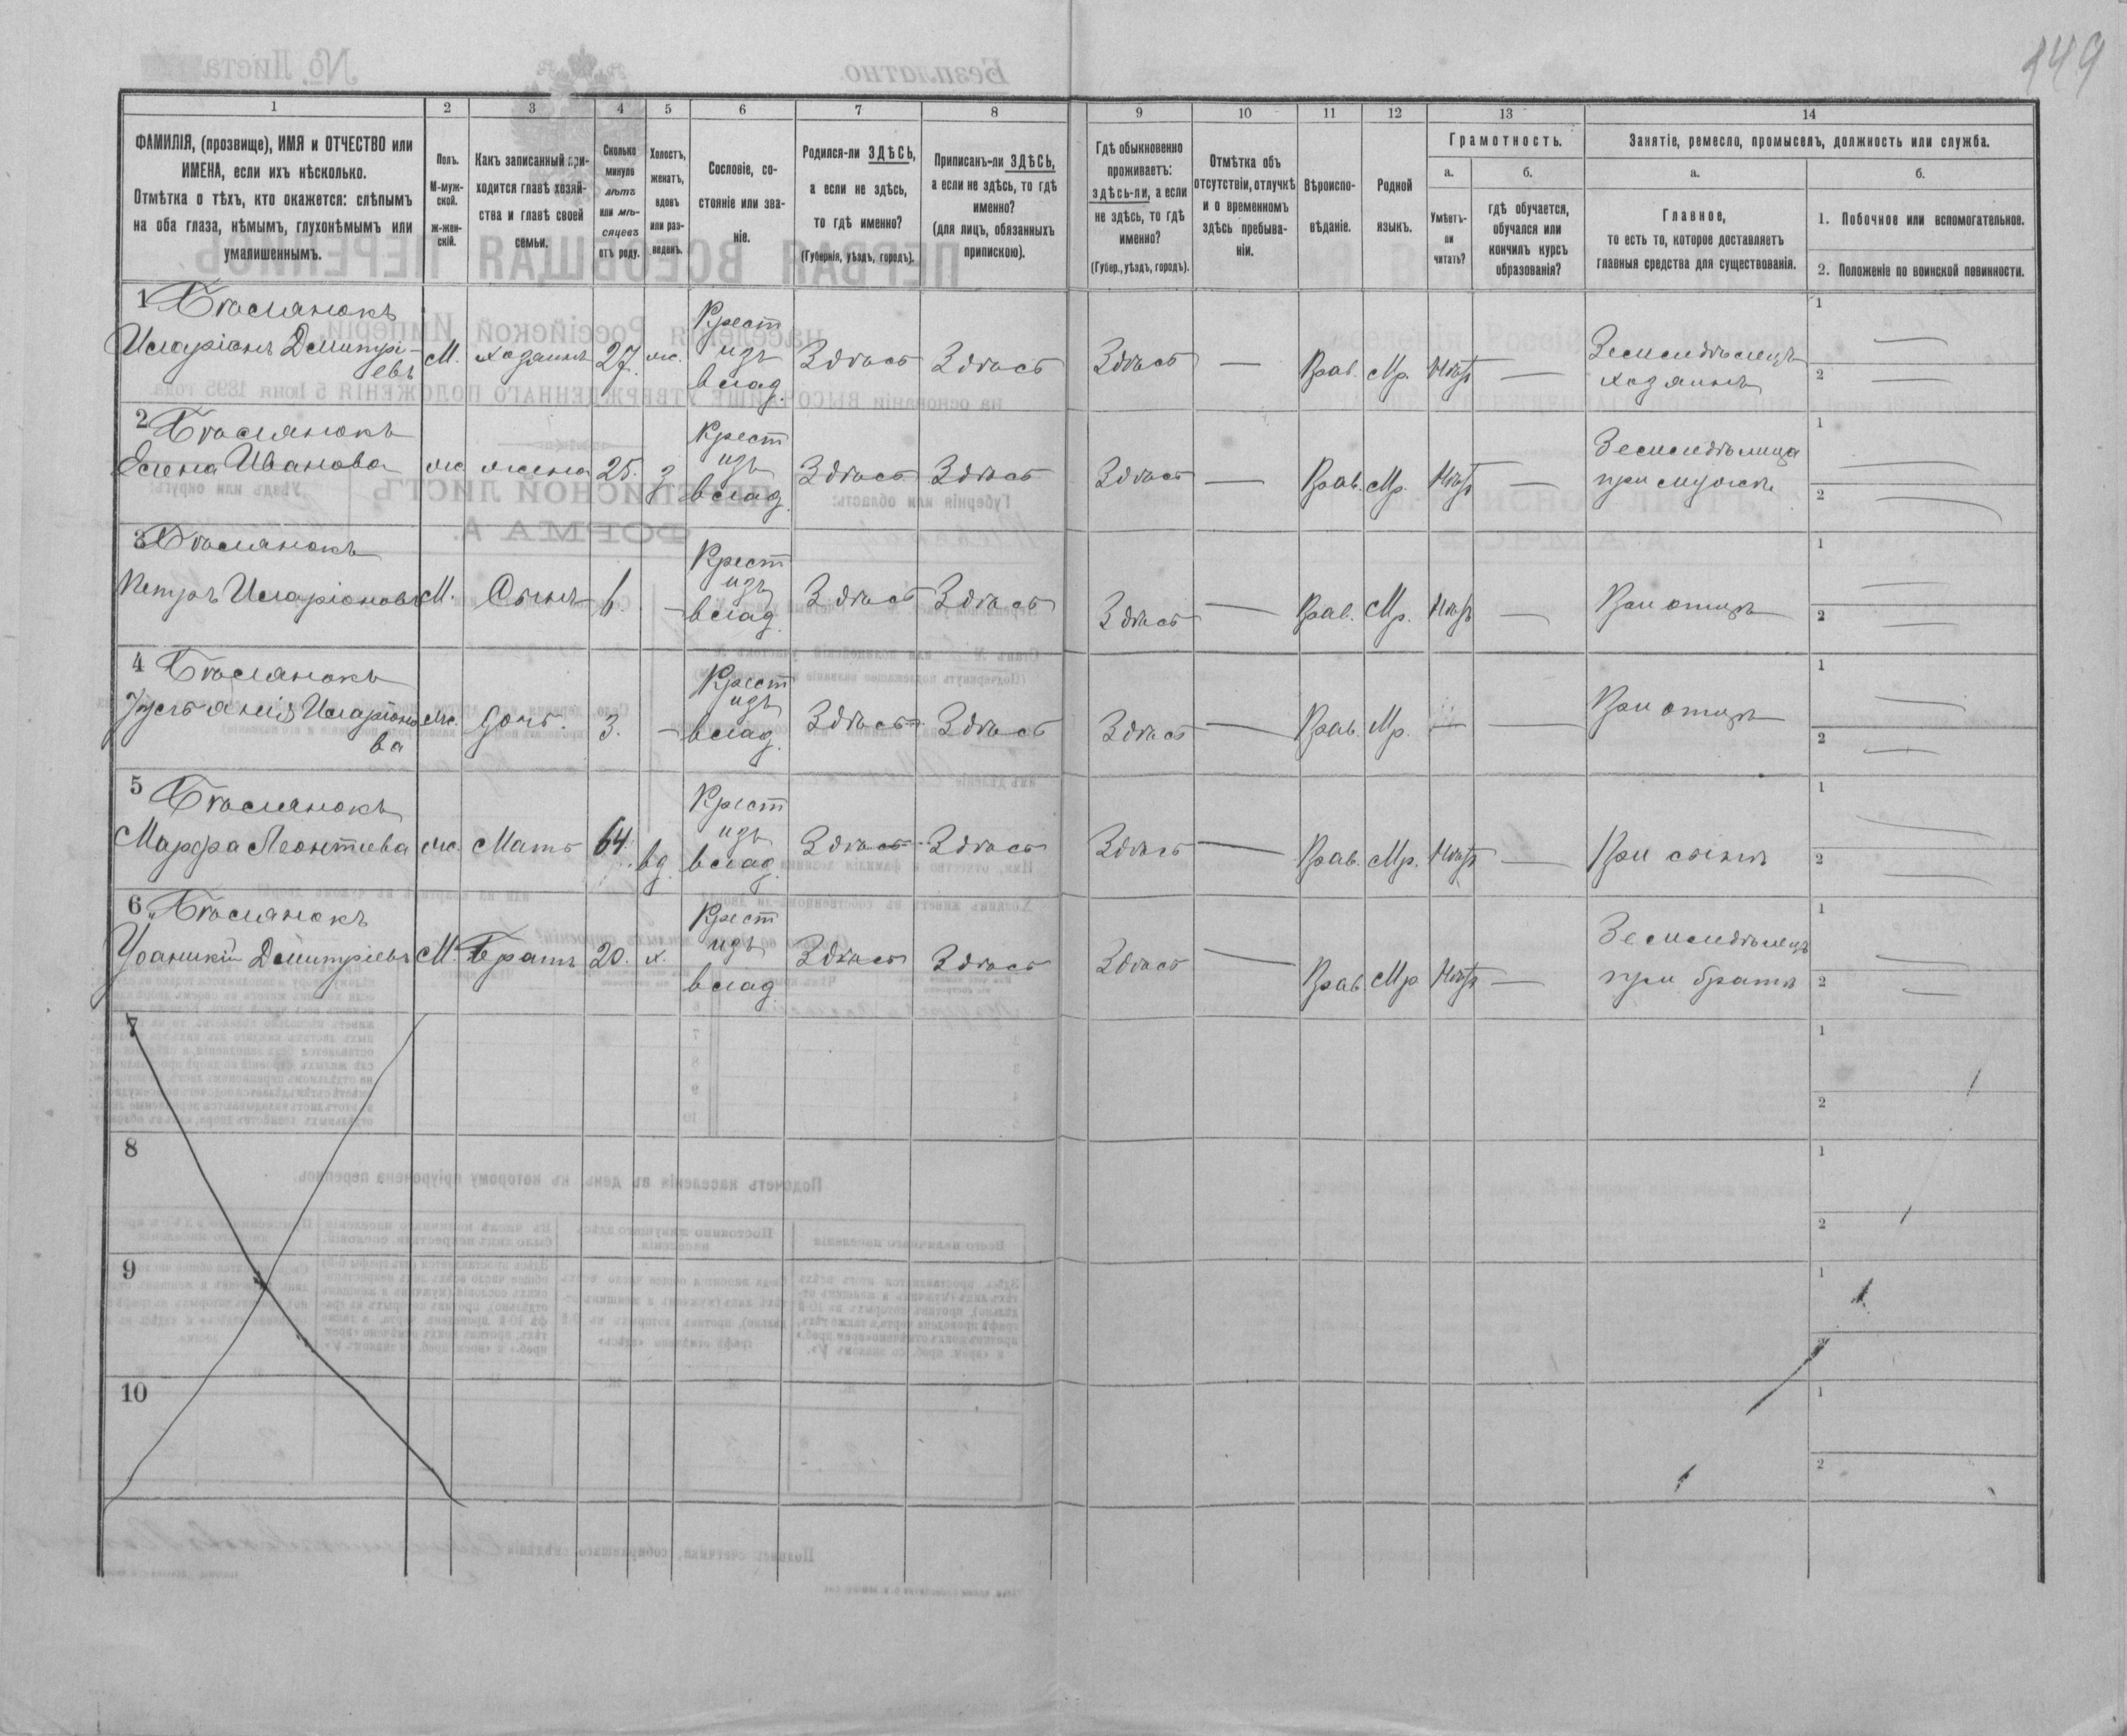 149
1 2 3 4 5 6 7 8 9 10 11 12 13 14
ФАМИЛІЯ, (прозвище), ИМЯ и ОТЧЕСТВО или
ИМЕНА, если ихъ нѣсколько.
Отмѣтка о тѣхъ, кто окажется: слѣпымъ
на оба глаза, нѣмымъ, глухонѣмымъ или
умалишеннымъ.
Полъ.
М-муж-
ской.
Ж-жен-
скій.
Какъ записанный при-
ходится главѣ хозяй-
ства и главѣ своей
семьи.
Сколько
минуло
лѣтъ
или мѣ-
сяцевъ
отъ роду.
Холостъ,
женатъ,
вдовъ
или раз-
веденъ.
Сословіе, со-
стояніе или зва-
ніе.
Родился-ли ЗДѢСЬ,
а если не здѣсь,
то гдѣ именно?
(Губернія, уѣздъ, городъ).
Приписанъ-ли ЗДѢСЬ,
а если не здѣсь, то гдѣ
именно?
(для лицъ, обязанныхъ
припискою).
Гдѣ обыкновенно
проживаетъ:
здѣсь-ли, а если
не здѣсь, то гдѣ
именно?
(Губер., уѣздъ, городъ).
Отмѣтка объ
отсутствіи, отлучкѣ
и о временномъ
здѣсь пребыва-
ніи.
Вѣроиспо-
вѣданіе.
Родной
языкъ.
Грамотность.
а.
Умѣетъ-
ли
читать?
б.
гдѣ обучается,
обучался или
кончилъ курсъ
образованія?
Занятіе, ремесло, промыселъ, должность или служба.
а.
Главное,
то есть то, которое доставляетъ
главныя средства для существованія.
б.
1. Побочное или вспомогательное.
2. Положеніе по воинской повинности.
1
Иларіонъ Дмитрі-
евъ
М. хозяинъ 27. ж. Крест
изъ
влад. Здѣсь Здѣсь Здѣсь — Прав. Мр. Нѣтъ — Земледѣлецъ
хозяинъ
1 —
2 —
2
Елена Иванова ж жена 25. з Крест
изъ
влад. Здѣсь Здѣсь Здѣсь — Прав. Мр. Нѣтъ — Земледѣлица
при мужѣ
1 —
2 —
3
Петръ Иларіоновъ М. Сынъ 6 — Крест
изъ
влад. Здѣсь Здѣсь Здѣсь — Прав. Мр. Нѣтъ — При отцѣ
1 —
2 —
4
Иларіоно
ва
ж. дочь. 3. — Крест
изъ
влад. Здѣсь Здѣсь Здѣсь — Прав. Мр. — — При отцѣ
1 —
2 —
5
Марфа Леонтіева ж. Мать 64. вд. Крест
изъ
влад. Здѣсь Здѣсь Здѣсь — Прав. Мр. Нѣтъ — При сынѣ
1 —
2 —
6
Іоаникій Дмитріевъ М. Братъ 20. х. Крест
изъ
влад. Здѣсь Здѣсь Здѣсь — Прав. Мр Нѣтъ — Земледѣлецъ
при братѣ
1
2 —
7
1
2
8
1
2
9
1
2
10
1
2